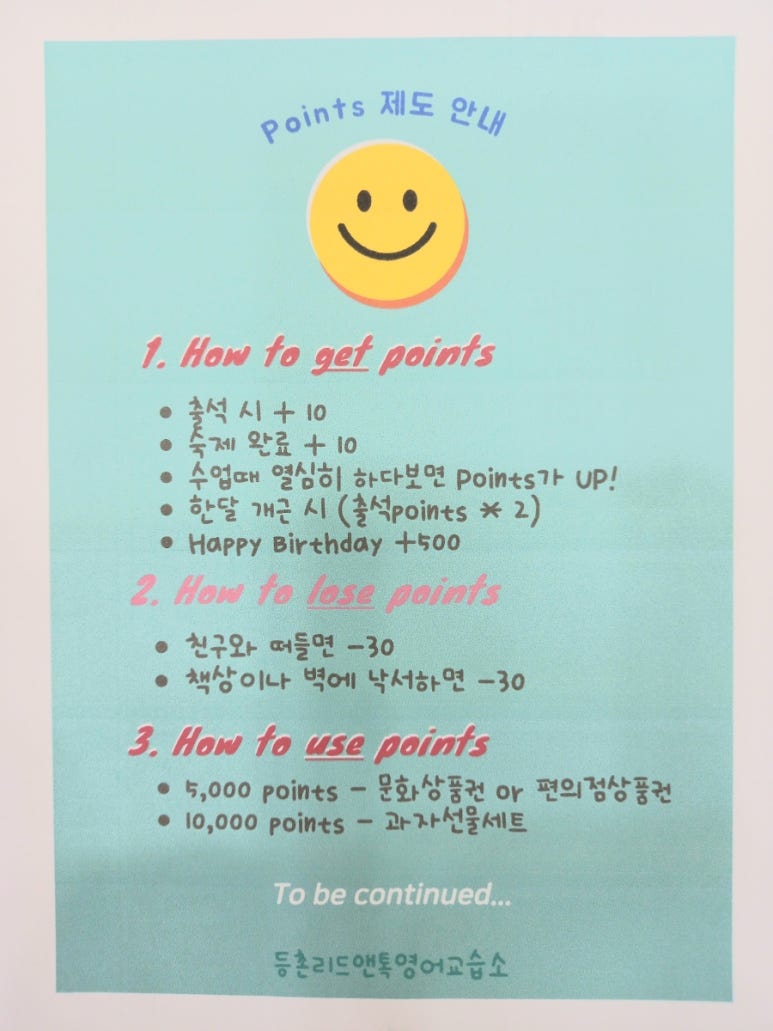 Points 제도 안내
1. How to get points
• 출석 시 + 10
• 숙제 완료 + 10
• 수업때 열심히 하다보면 Points가 UP!
• 한달 개근 시 (출석points * 2)
• Happy Birthday +500
2. How to lose points
• 친구와 떠들면 -30
• 책상이나 벽에 낙서하면 -30
3. How to use points
• 5,000 points - 문화상품권 or 편의점상품권
• 10,000 points - 과자선물세트
To be continued...
등촌리드앤톡영어교습소